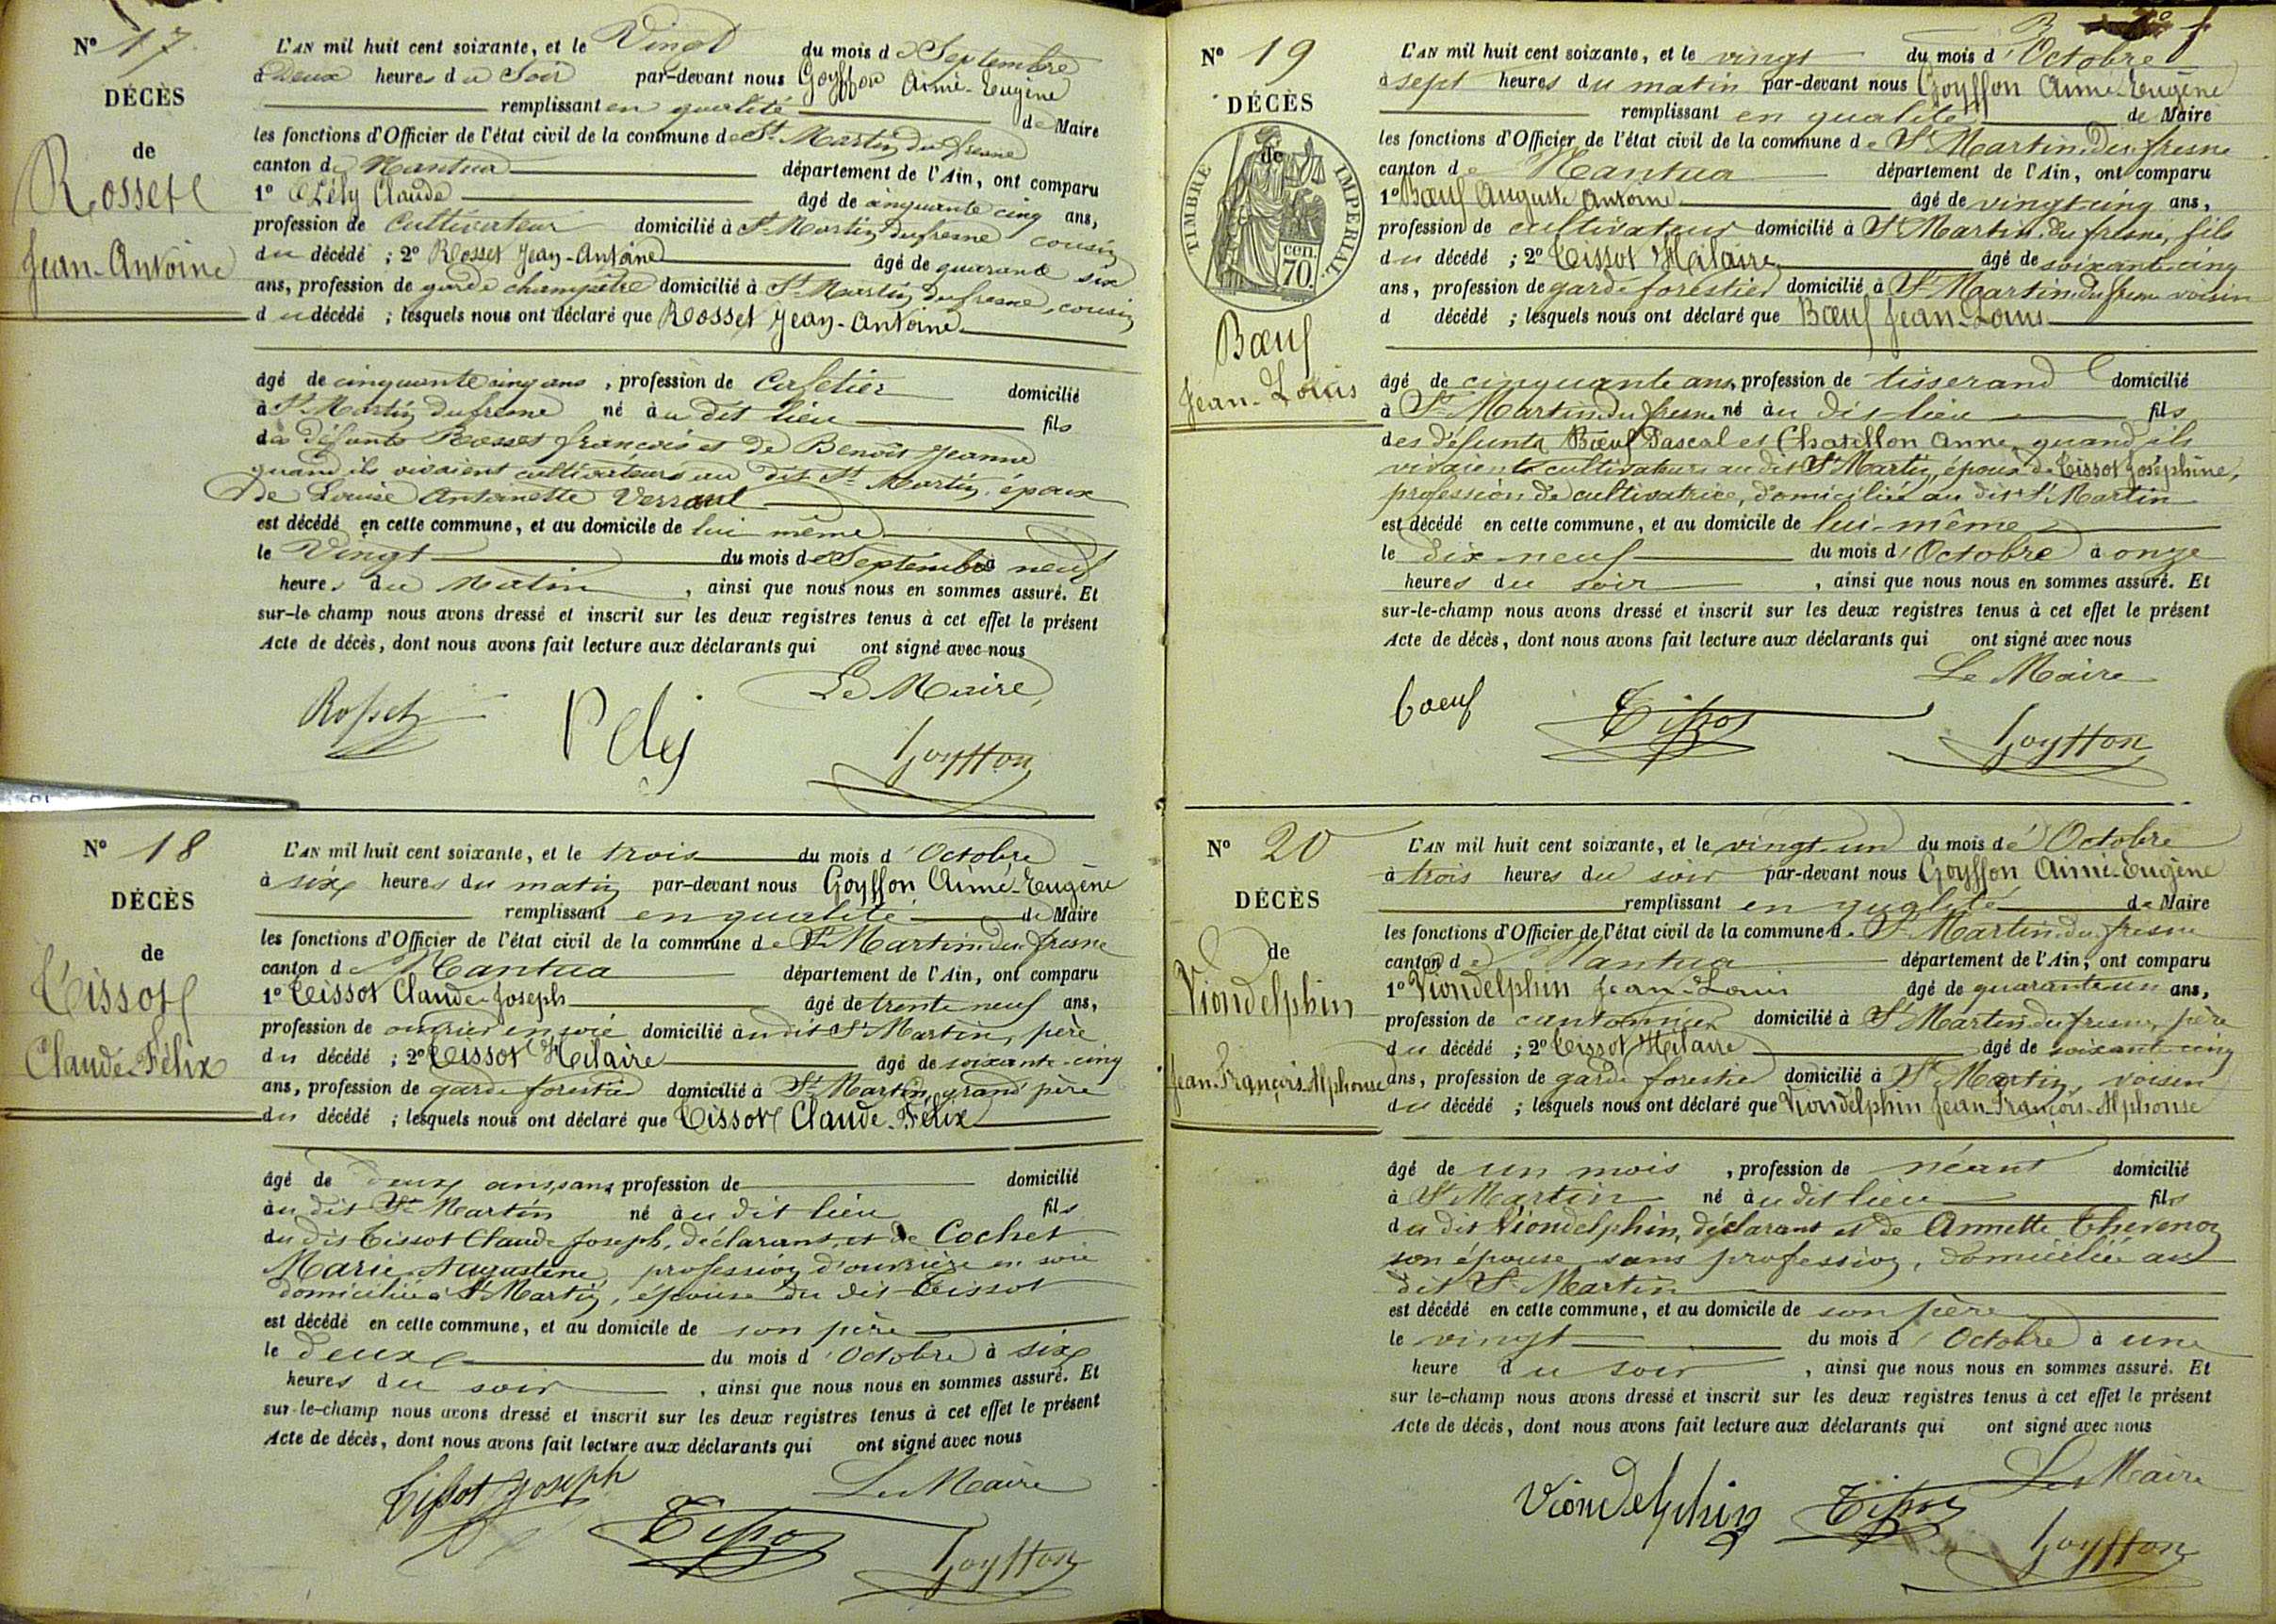 N° 17
DÉCÈS
de
Rosset
Jean-Antoine
L'AN mil huit cent soixante, et le Vingt du mois de Septembre
à Deux heures du Soir par-devant nous Goyffon Aimé-Eugène
remplissant en qualité de Maire
les fonctions d'Officier de l'état civil de la commune de St Martin du fresne
canton de Nantua département de l'Ain, ont comparu
1° Pély Claude âgé de cinquante cinq ans,
profession de Cultivateur domicilié à St Martin du fresne cousin
du décédé ; 2° Rosset Jean-Antoine âgé de quarante six
ans, profession de garde champêtre domicilié à St Martin du fresne, cousin
du décédé ; lesquels nous ont déclaré que Rosset Jean-Antoine
âgé de cinquante cinq ans, profession de Cafetier domicilié
à St Martin du fresne né au dit lieu fils
des défunts Rosset françois et de Benoît Jeanne
quand ils vivaient cultivateurs au dit St Martin, époux
de Louise Antoinette Verraul
est décédé en cette commune, et au domicile de lui même
le Vingt du mois de Septembre à neuf
heures du Matin, ainsi que nous nous en sommes assuré. Et
sur-le-champ nous avons dressé et inscrit sur les deux registres tenus à cet effet le présent
Acte de décès, dont nous avons fait lecture aux déclarants qui ont signé avec nous
Le Maire,
Rosset Pely Goyffon
N° 18
DÉCÈS
de
Tissot
Claude-Félix
L'AN mil huit cent soixante, et le trois du mois d'Octobre
à six heures du matin par-devant nous Goyffon Aimé-Eugène
remplissant en qualité de Maire
les fonctions d'Officier de l'état civil de la commune de St Martin du fresne
canton de Nantua département de l'Ain, ont comparu
1° Tissot Claude-Joseph âgé de trente neuf ans,
profession de ouvrier en soie domicilié au dit St Martin, père
du décédé ; 2° Tissot Hilaire âgé de soixante-cinq
ans, profession de garde forestier domicilié à St Martin, grand père
du décédé ; lesquels nous ont déclaré que Tissot Claude-Félix
âgé de deux ans, sans profession de domicilié
au dit St Martin né au dit lieu fils
du dit Tissot Claude Joseph, déclarant, et de Cochet
Marie Augustine, profession d'ouvrière en soie
domiciliée à St Martin, épouse du dit Tissot
est décédé en cette commune, et au domicile de son père
le deux du mois d'Octobre à six
heures du soir, ainsi que nous nous en sommes assuré. Et
sur-le-champ nous avons dressé et inscrit sur les deux registres tenus à cet effet le présent
Acte de décès, dont nous avons fait lecture aux déclarants qui ont signé avec nous
Le Maire
Tissot Joseph Tissot Goyffon
N° 19
DÉCÈS
de
TIMBRE IMPÉRIAL
cen.
70.
Bœuf
Jean-Louis
L'AN mil huit cent soixante, et le vingt du mois d'Octobre
à sept heures du matin par-devant nous Goyffon Aimé-Eugène
remplissant en qualité de Maire
les fonctions d'Officier de l'état civil de la commune de St Martin du fresne
canton de Nantua département de l'Ain, ont comparu
1° Bœuf Auguste Antoine âgé de vingt-cinq ans,
profession de cultivateur domicilié à St Martin du fresne, fils
du décédé ; 2° Tissot Hilaire âgé de soixante cinq
ans, profession de garde forestier domicilié à St Martin du fresne voisin
d décédé ; lesquels nous ont déclaré que Bœuf Jean-Louis
âgé de cinquante ans, profession de tisserand domicilié
à St Martin du fresne né au dit lieu fils
des défunts Bœuf Pascal et Chatillon Anne, quand ils
vivaient cultivateurs au dit St Martin, époux de Tissot Joséphine,
profession de cultivatrice, domiciliée au dit St Martin
est décédé en cette commune, et au domicile de lui-même
le dix neuf du mois d'Octobre à onze
heures du soir, ainsi que nous nous en sommes assuré. Et
sur-le-champ nous avons dressé et inscrit sur les deux registres tenus à cet effet le présent
Acte de décès, dont nous avons fait lecture aux déclarants qui ont signé avec nous
Le Maire
boeuf Tissot Goyffon
N° 20
DÉCÈS
de
Viondelphin
Jean-François-Alphonse
L'AN mil huit cent soixante, et le vingt-un du mois de d'Octobre
à trois heures du soir par-devant nous Goyffon Aimé-Eugène
remplissant en qualité de Maire
les fonctions d'Officier de l'état civil de la commune de St Martin du fresne
canton de Nantua département de l'Ain, ont comparu
1° Viondelphin Jean-Louis âgé de quarante un ans,
profession de cantonnier domicilié à St Martin du fresne, père
du décédé ; 2° Tissot Hilaire âgé de soixante cinq
ans, profession de garde forestier domicilié à St Martin, voisin
du décédé ; lesquels nous ont déclaré que Viondelphin Jean-François-Alphonse
âgé de un mois, profession de néant domicilié
à St Martin né au dit lieu fils
du dit Viondelphin, déclarant et de Annette Thevenon
son épouse sans profession, domiciliée au
dit St Martin
est décédé en cette commune, et au domicile de son père
le vingt du mois d'Octobre à une
heure du soir, ainsi que nous nous en sommes assuré. Et
sur le-champ nous avons dressé et inscrit sur les deux registres tenus à cet effet le présent
Acte de décès, dont nous avons fait lecture aux déclarants qui ont signé avec nous
Le Maire
Viondelphin Tissot Goyffon